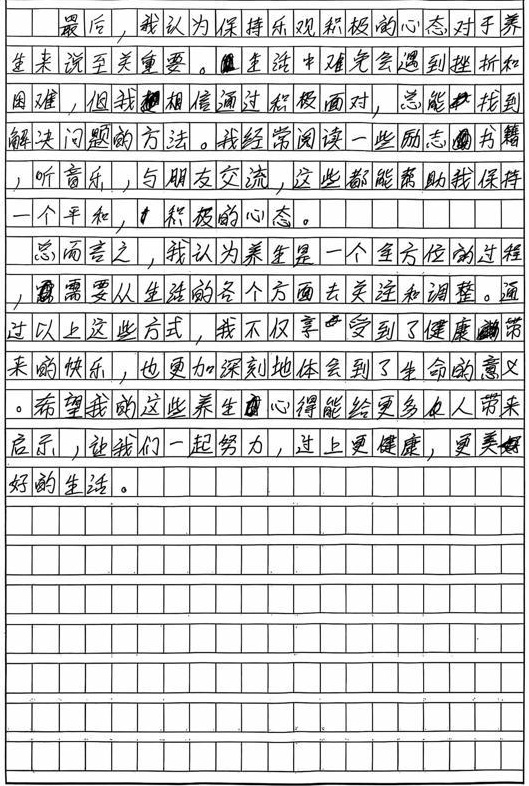 最后，我认为保持乐观积极的心态对于养
生来说至关重要。生活中难免会遇到挫折和
困难，但我相信通过积极面对，总能找到
解决问题的方法。我经常阅读一些励志书籍
，听音乐，与朋友交流，这些都能帮助我保持
一个平和，积极的心态。
总而言之，我认为养生是一个全方位的过程
，需要从生活的各个方面去关注和调整。通
过以上这些方式，我不仅享受到了健康带
来的快乐，也更加深刻地体会到了生命的意义
。希望我的这些养生心得能给更多人带来
启示，让我们一起努力，过上更健康，更美
好的生活。